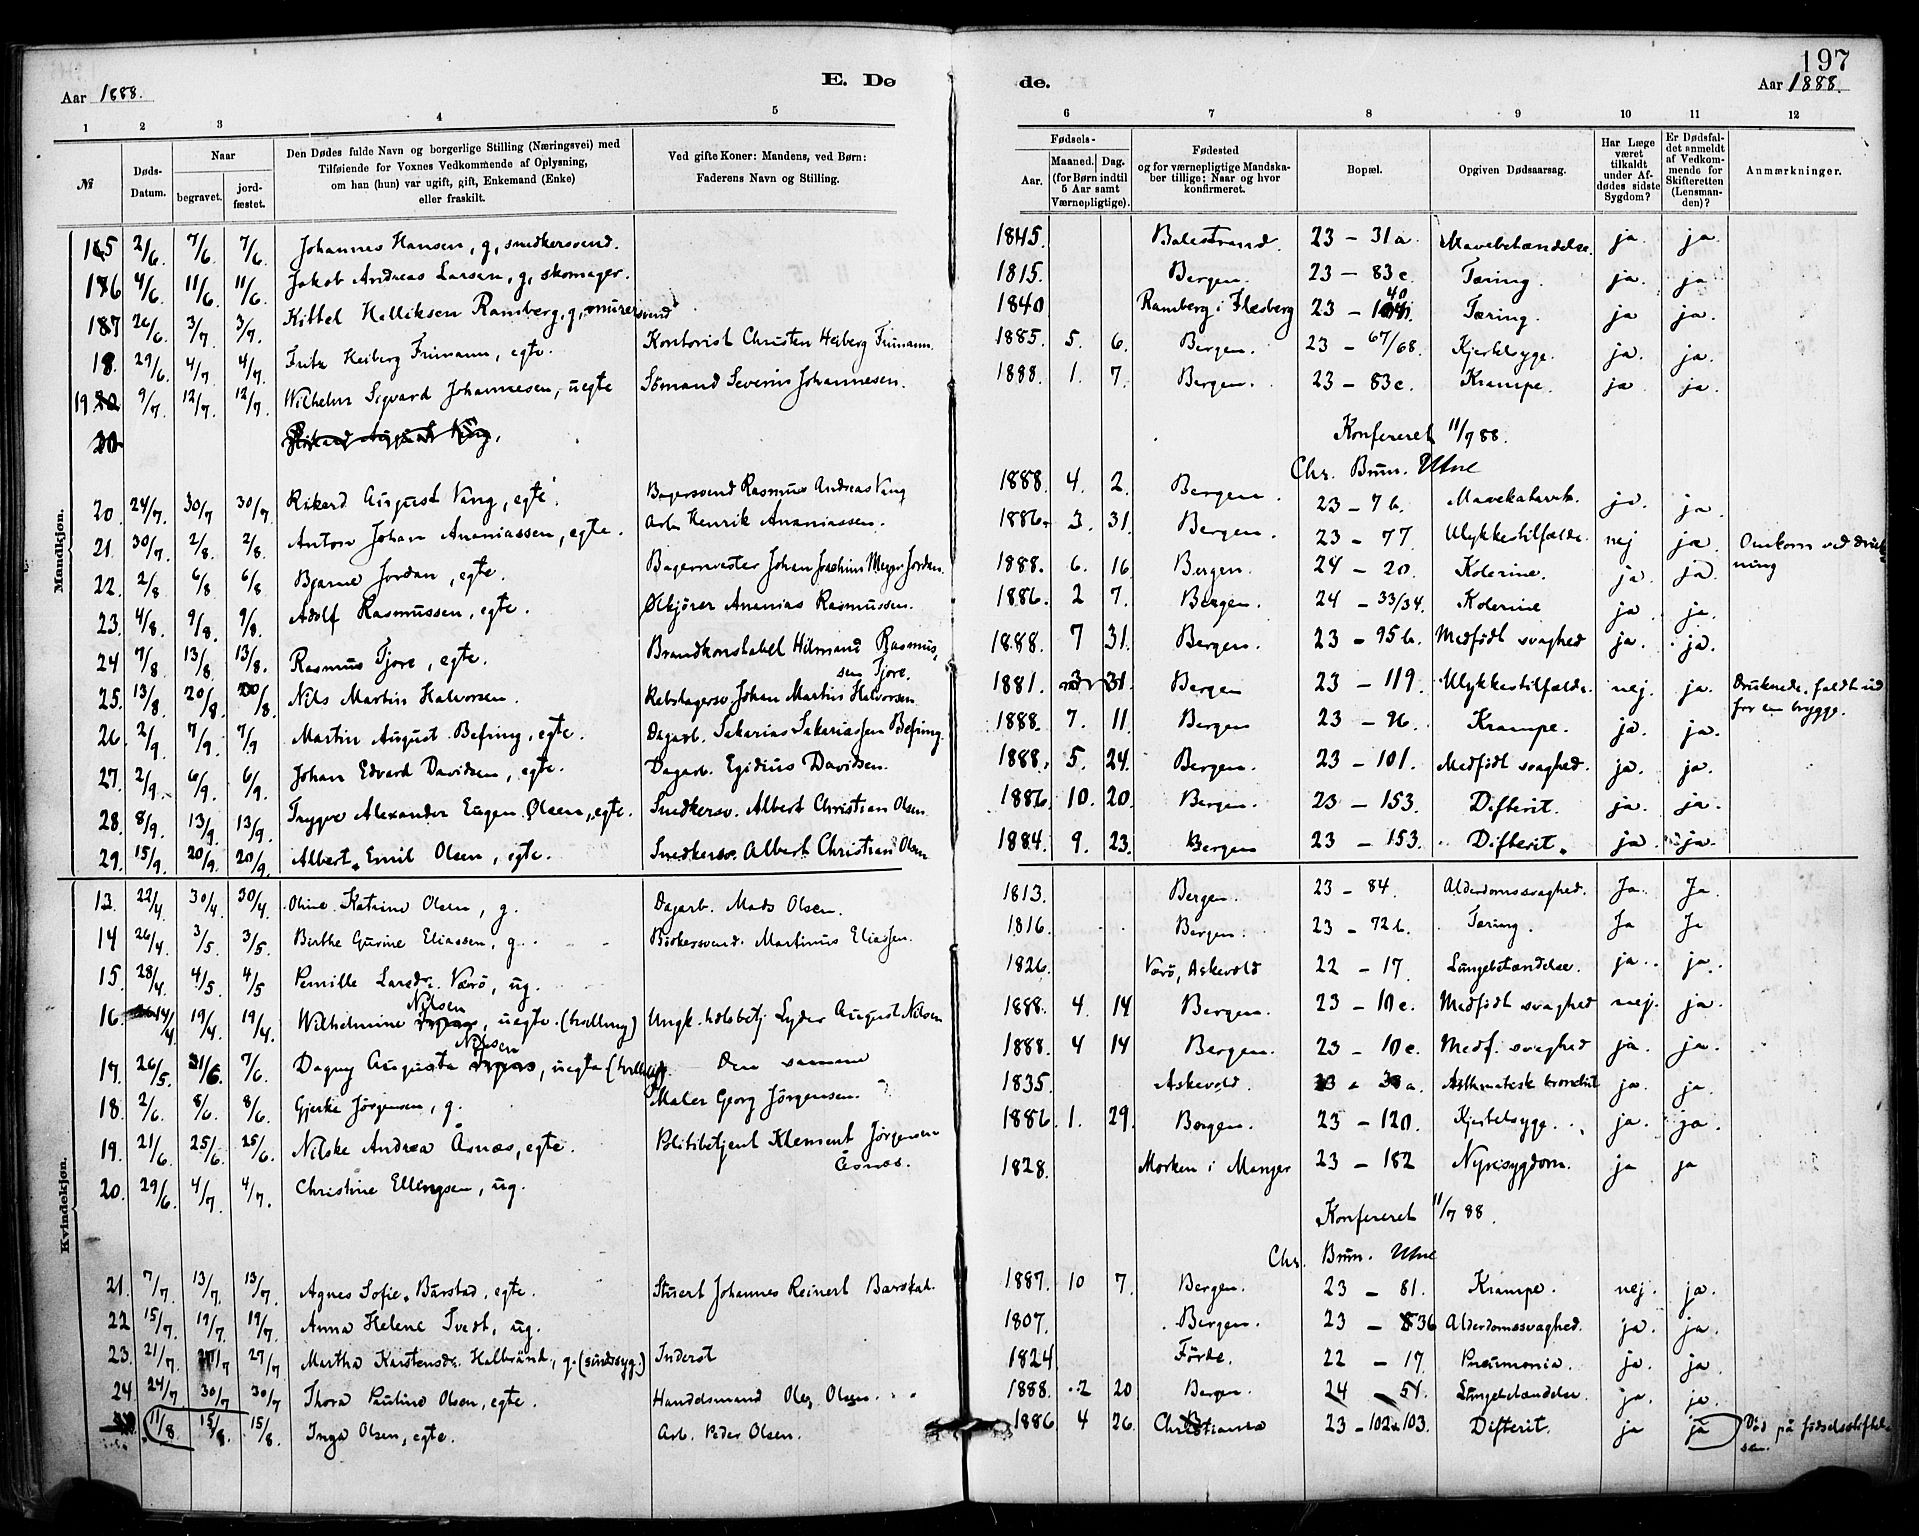 197
Aar 1888. E. Dø de. Aar 1888.
1 2 3 4 5 6 7 8 9 10 11 12
№ Døds-Datum. Naar begravet. jord-fæstet. Den Dødes fulde Navn og borgerlige Stilling (Næringsvei) med Tilføiende for Voxnes Vedkommende af Oplysning, om han (hun) var ugift, gift, Enkemand (Enke) eller fraskilt. Ved gifte Koner: Mandens, ved Børn: Faderens Navn og Stilling. Fødsels- Aar. Maaned. Dag. (for Børn indtil 5 Aar samt Værnepligtige). Fødested og for værnepligtige Mandskaber tillige: Naar og hvor konfirmeret. Bopæl. Opgiven Dødsaarsag. Har Læge været tilkaldt under Afdødes sidste Sygdom? Er Dødsfaldet anmeldt af Vedkommende for Skifteretten (Lensmanden)? Anmærkninger.
Mandkjøn.
2/6. 7/6. 7/6. Johannes Hansen, g, snedkersvend. 1845. Balestrand. 23 – 31a. Mavebetændelse. ja. ja.
4/6. 11/6. 11/6. Jakob Andreas Larsen, g, skomager. 1815. Bergen. 23 – 83c. Tæring. ja. ja
26/6. 3/7. 3/7. Kittel Helliksen Ramberg, g, murersvend 1840 Ramberg i Flesberg 23 – Tæring. ja ja.
18. 29/6. 4/7. 4/7. Fritz Heiberg Frimann, egte. Kontorist Christen Heiberg Frimann. 1885. 5. 6. Bergen. 23 – 67/68. Kjertelsyge. ja. ja.
19 9/7. 12/7. 12/7. Wilhelm Sigvard Johannesen, uegte Sömand Severin Johannesen. 1888. 1. 7. Bergen. 23 – 83c. Krampe. ja ja.
20 Rikard August Vang. Konfereret 11/7 88.
Chr. Brun. Utne
20. 24/7. 30/7 30/7 Rikard August Vang, egte. Bagersvend Rasmus Andreas Vang 1888. 4. 2. Bergen. 23 – 7b. Mavekatarrh. ja. ja.
21. 30/7. 2/8. 2/8. Anton Johan Ananiassen, egte. Arb. Henrik Ananiassen. 1886. 3. 31. Bergen. 23 – 77. Ulykkestilfælde. nej ja. Omkom ved drukning
22. 2/8. 6/8. 6/8. Bjarne Jordan, egte. Bagermester Johan Joachim Meyer Jordan. 1888. 6. 16 Bergen. 24 – 20. Kolerine. ja. ja.
23. 4/8. 9/8. 9/8. Adolf Rasmussen, egte. Ølkjörer Ananias Rasmussen. 1886. 2 7. Bergen. 24 – 33/34. Kolerine ja ja.
24 7/8. 13/8. 13/8. Rasmus Tjore, egte. Brandkonstabel Hilmand Rasmussen Tjore. 1888. 7 31. Bergen. 23 – 95b. Medfödt svaghed ja. ja.
25. 13/8. 20/8. 20/8. Nils Martin Halvorsen. Rebslagersv. Johan Martin Halvorsen. 1881. 3 31. Bergen 23 – 119. Ulykkestilfælde. nej. ja. Druknede. faldt ud for en brygge.
26. 2/9. 7/9. 7/9 Martin August Befring, egte. Dagarb. Sakarias Sakariassen Befring. 1888. 7. 11. Bergen 23 – 96 Krampe. ja. ja.
27. 2/9. 6/9. 6/9. Johan Edvard Davidsen, egte. Dagarb. Egidius Davidsen. 1888. 5. 24. Bergen. 23 – 101. Medfödt svaghed. ja. ja.
28. 8/9. 13/9. 13/9. Trygve Alexander Eugen Olsen, egte. Snedkersv. Albert Christian Olsen. 1886. 10. 20. Bergen. 23 – 153. Difterit. ja. ja.
29. 15/9. 20/9. 20/9. Albert Emil Olsen, egte. Snedkersv. Albert Christian Olsen 1884. 9. 23. Bergen 23 – 153. Difterit. ja. ja.
Kvindekjøn.
13. 22/4. 30/4. 30/4. Oline Katrine Olsen, g. Dagarb. Mads Olsen. 1813. Bergen. 23 – 84. Alderdomssvaghed. Ja. Ja.
14 26/4. 3/5. 3/5. Birthe Gurine Eliassen, g. Bödkersvend. Martinus Eliassen. 1816. Bergen. 23 – 72b. Tæring. Ja Ja
15. 28/4. 4/5. 4/5. Pernille Larsdr. Værö, ug. 1826. Værö, Askevold 22 – 17. Lungebetændelse. ja. ja.
16. 14/4 19/4. 19/4. Wilhelmine Nilsen, uegte. (tvilling) Ungk. Lyder August Nilsen 1888. 4 14 Bergen. 23 – 10c. Medfödt svaghed nej. ja.
17. 26/5. 7/6. Dagny Augusta Nilsen, uegte (tvilling). Den samme 1888. 4 14 Bergen. 23 – 10c. Medf. svaghed ja. ja.
18. 2/6. 8/6. 8/6. Gjerke Jörgensen, g. Maler Georg Jörgensen. 1835. Askevold. Asthmatisk bronchit ja. ja
19. 21/6. 25/6. 25/6. Nilske Andrea Åsnæs, egte. Politibetjent Klement Jörgensen Åsnæs. 1886. 1. 29. Bergen. 23 – 120. Kjertelsyge. ja. ja.
20. 29/6. 4/7. 4/7. Christine Ellingsen, ug. 1828. Morken i Manger 23 – 182 Nyresygdom. ja ja
Konfereret 11/7 88.
Chr. Brun. Utne
21. 7/7. 13/7. 13/7. Agnes Sofie Barstad, egte. Stuert Johannes Reinert Barstad. 1887. 10 7. Bergen. 23 – 81. Krampe. nej. ja.
22 15/7. 19/7. 19/7. Anna Helene Tvedt, ug. 1807. Bergen. 23 – Alderdomssvaghed. ja. ja.
23. 21/7. 27/7 27/7 Martha Karstensdr. Halbränd, g. (sindssyg.) Inderst 1824 Förde. 22 – 17 Pneumonia. ja. ja
24 24/7 30/7 30/7 Thora Pauline Olsen, egte. Handelsmand Ole Olsen. 1888. 2 20 Bergen. 24 – 51. Lungebetændelse ja. ja.
11/8. 15/8. 15/8. Inga Olsen, egte. Arb. Peder Olsen. 1886 4 26. Christiania 23 – 102a 103. Difterit. ja ja Död på födselsstiftelsen.